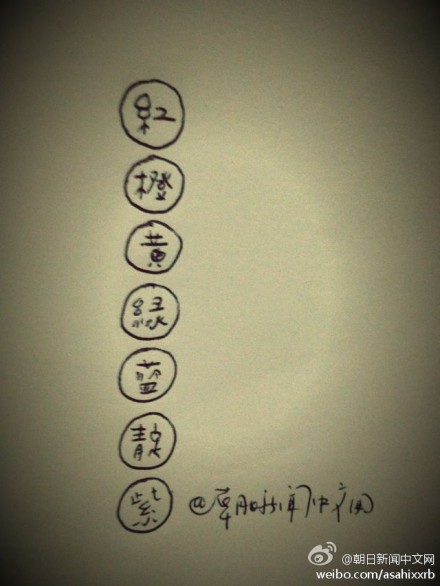 紅
橙
黄
緑
蓝
靛
紫 @朝日新闻中文网
@朝日新闻中文网
weibo.com/asahixxrb